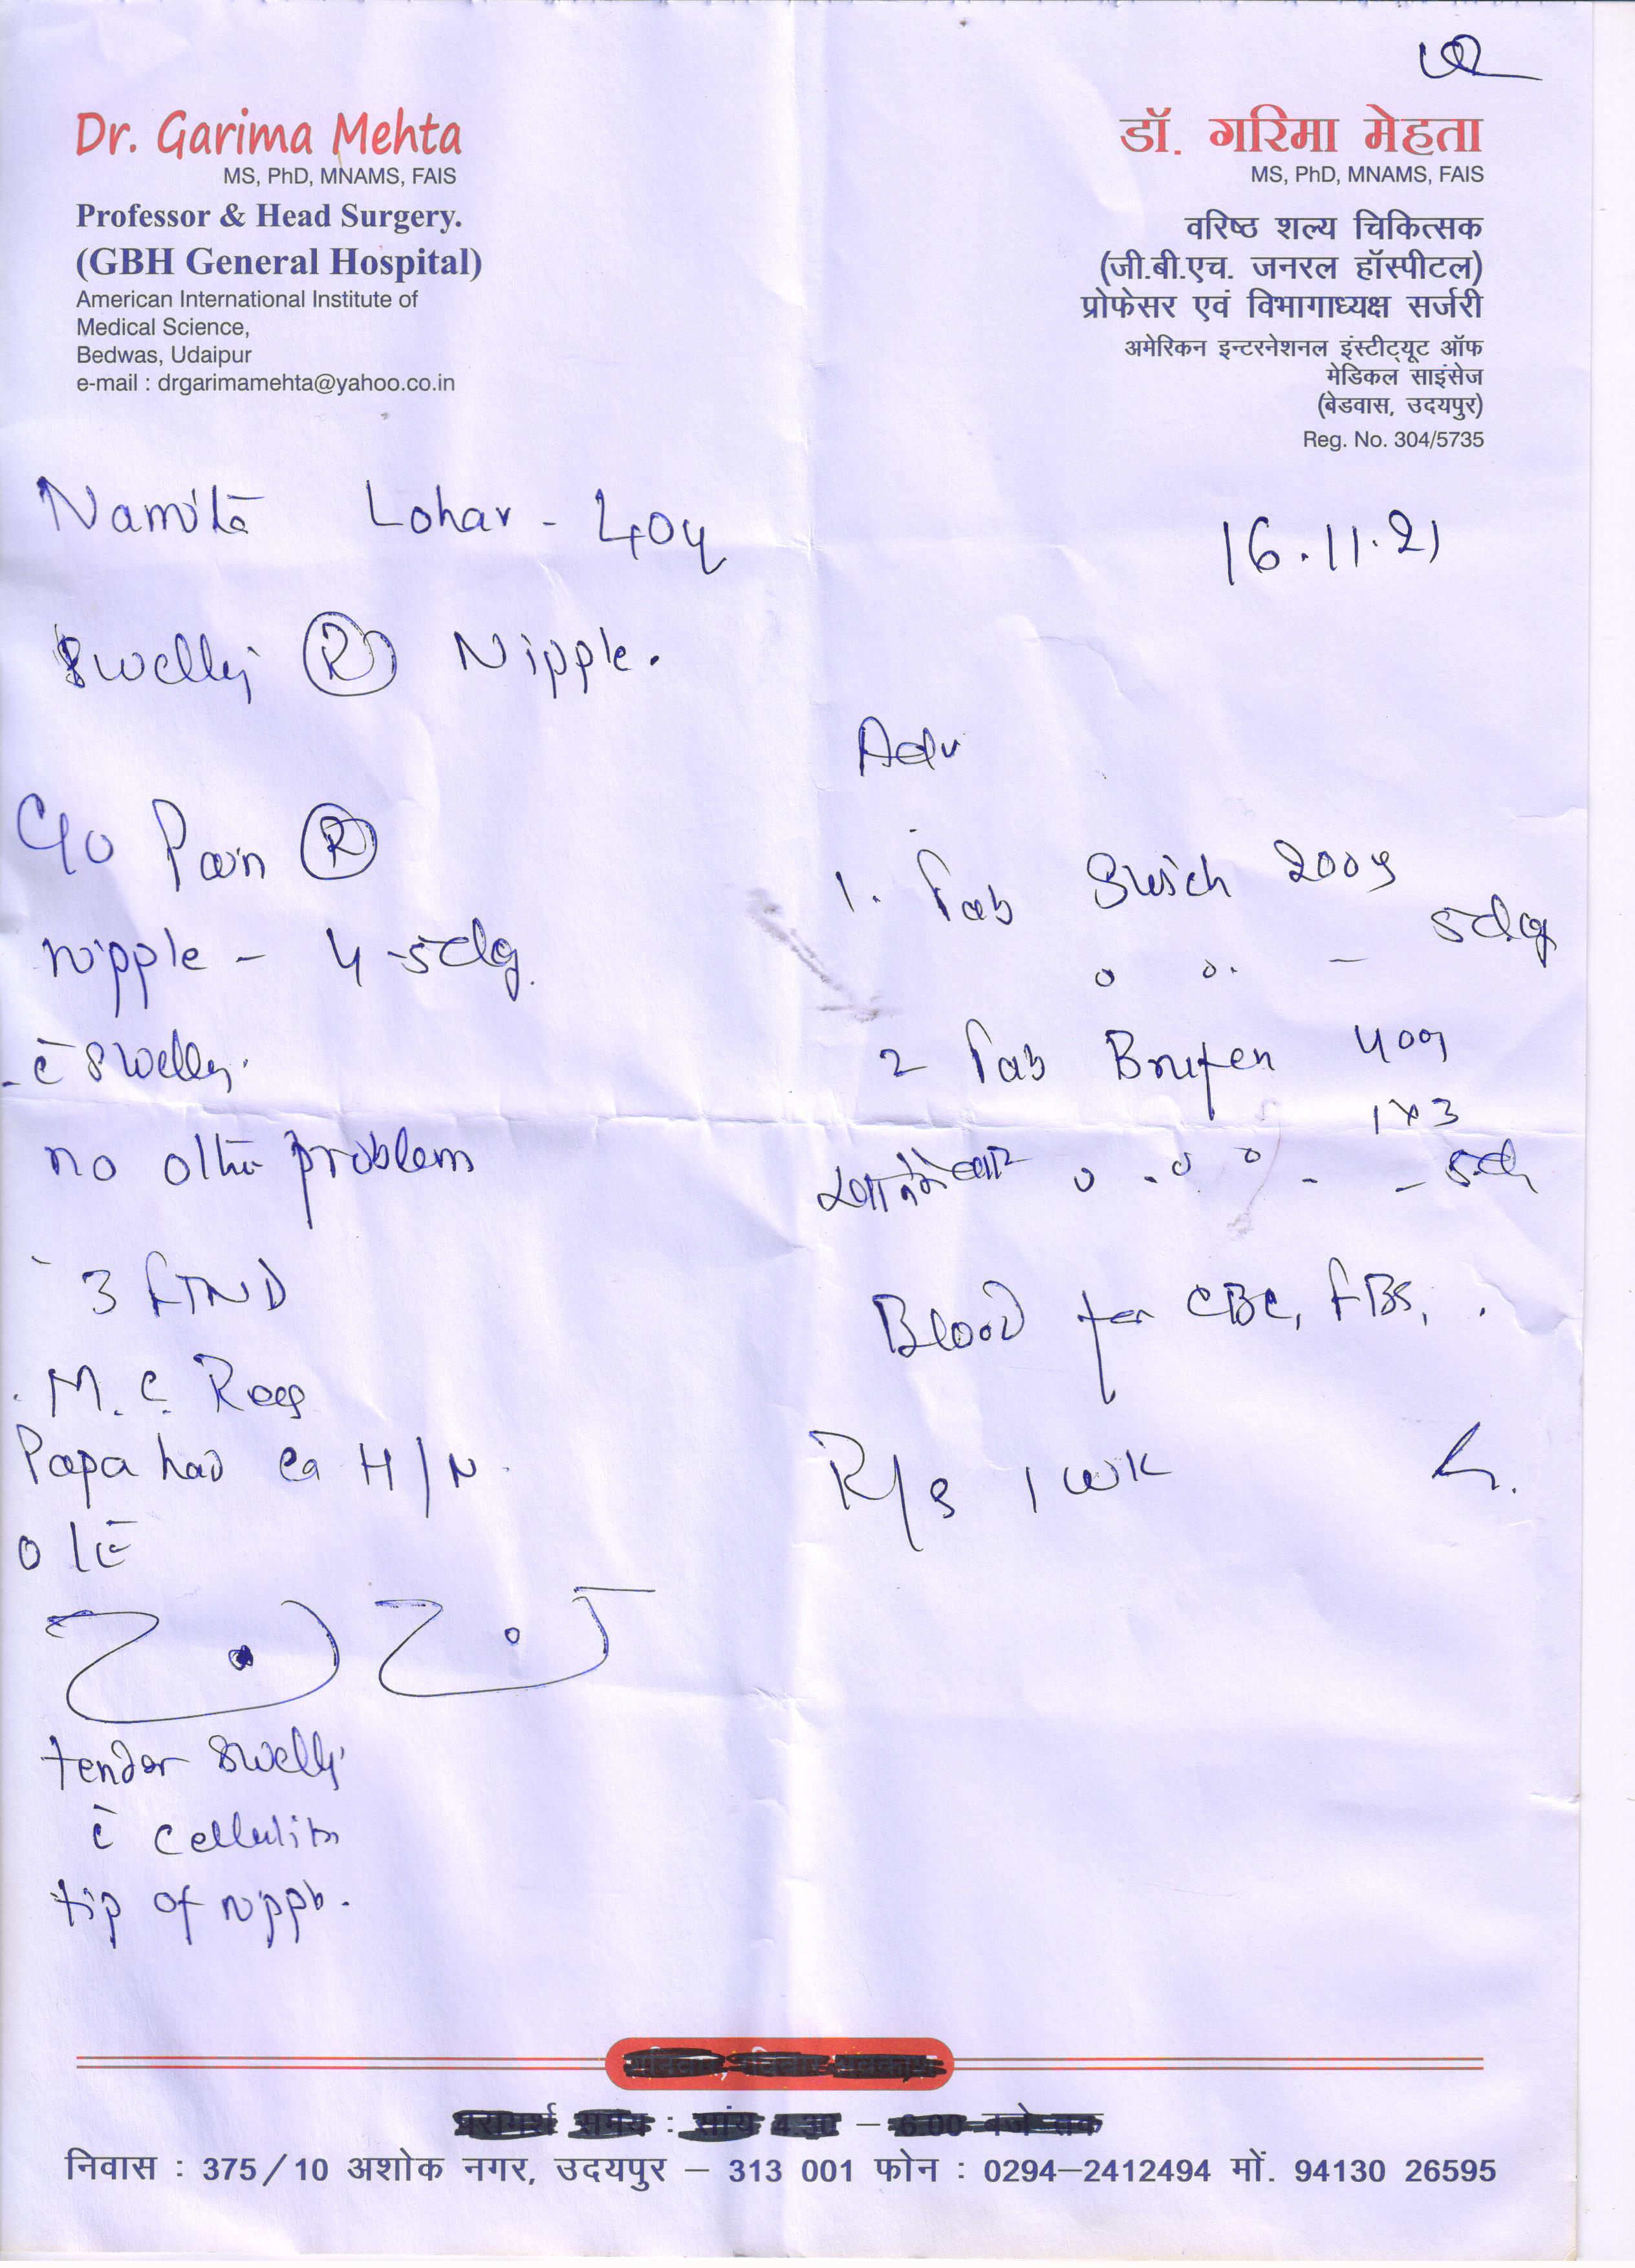 Dr. Garima Mehta
MS, PhD, MNAMS, FAIS
Professor & Head Surgery.
(GBH General Hospital)
American International Institute of
Medical Science,
Bedwas, Udaipur
e-mail : drgarimamehta@yahoo.co.in
डॉ. गरिमा मेहता
MS, PhD, MNAMS, FAIS
वरिष्ठ शल्य चिकित्सक
(जी.बी.एच. जनरल हॉस्पीटल)
प्रोफेसर एवं विभागाध्यक्ष सर्जरी
अमेरिकन इन्टरनेशनल इंस्टीट्यूट ऑफ
मेडिकल साइंसेज
(बेडवास, उदयपुर)
Reg. No. 304/5735
Namita Lohar - 40y
16.11.21
Swelling Ⓡ Nipple.
C/o Pain Ⓡ
nipple - 4-5dy.
c̄ swelling.
no other problem
3 FTND
M.C. Reg
Papa had Ca H/N.
O/E
tender swelling
c̄ cellulitis
tip of nipple.
Adv
1. Tab 200
5dy
2 Tab Brufen 400
1x3
- 5d
Blood for CBC, FBS,
R/s 1 wk
निवास : 375/10 अशोक नगर, उदयपुर – 313 001 फोन : 0294–2412494 मों. 94130 26595